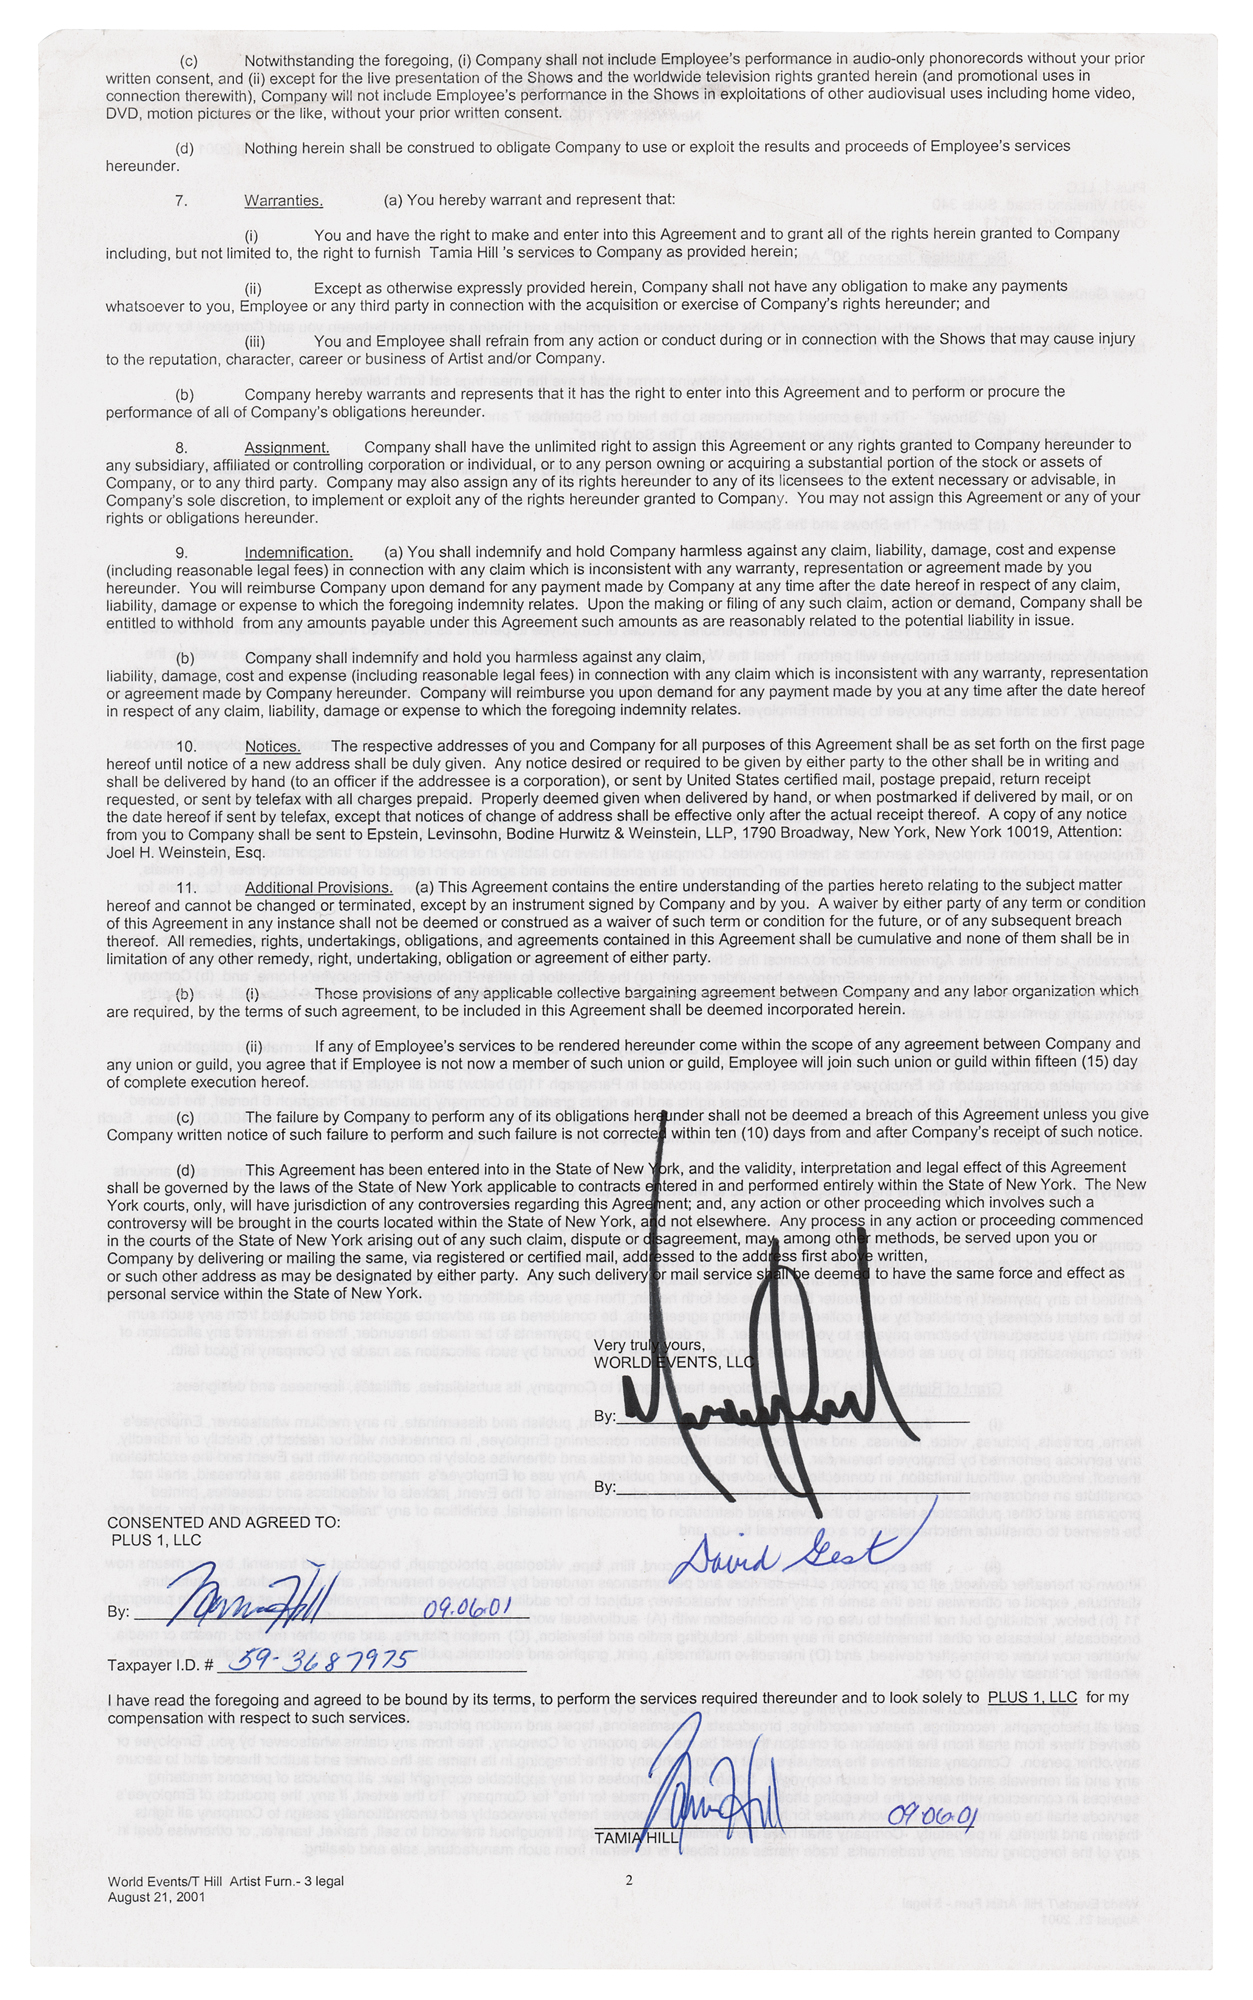 (c) Notwithstanding the foregoing, (i) Company shall not include Employee's performance in audio-only phonorecords without your prior
written consent, and (ii) except for the live presentation of the Shows and the worldwide television rights granted herein (and promotional uses in
connection therewith), Company will not include Employee's performance in the Shows in exploitations of other audiovisual uses including home video,
DVD, motion pictures or the like, without your prior written consent.
(d) Nothing herein shall be construed to obligate Company to use or exploit the results and proceeds of Employee's services
hereunder.
7. Warranties. (a) You hereby warrant and represent that:
(i) You and have the right to make and enter into this Agreement and to grant all of the rights herein granted to Company
including, but not limited to, the right to furnish Tamia Hill 's services to Company as provided herein;
(ii) Except as otherwise expressly provided herein, Company shall not have any obligation to make any payments
whatsoever to you, Employee or any third party in connection with the acquisition or exercise of Company's rights hereunder; and
(iii) You and Employee shall refrain from any action or conduct during or in connection with the Shows that may cause injury
to the reputation, character, career or business of Artist and/or Company.
(b) Company hereby warrants and represents that it has the right to enter into this Agreement and to perform or procure the
performance of all of Company's obligations hereunder.
8. Assignment. Company shall have the unlimited right to assign this Agreement or any rights granted to Company hereunder to
any subsidiary, affiliated or controlling corporation or individual, or to any person owning or acquiring a substantial portion of the stock or assets of
Company, or to any third party. Company may also assign any of its rights hereunder to any of its licensees to the extent necessary or advisable, in
Company's sole discretion, to implement or exploit any of the rights hereunder granted to Company. You may not assign this Agreement or any of your
rights or obligations hereunder.
9. Indemnification. (a) You shall indemnify and hold Company harmless against any claim, liability, damage, cost and expense
(including reasonable legal fees) in connection with any claim which is inconsistent with any warranty, representation or agreement made by you
hereunder. You will reimburse Company upon demand for any payment made by Company at any time after the date hereof in respect of any claim,
liability, damage or expense to which the foregoing indemnity relates. Upon the making or filing of any such claim, action or demand, Company shall be
entitled to withhold from any amounts payable under this Agreement such amounts as are reasonably related to the potential liability in issue.
(b) Company shall indemnify and hold you harmless against any claim,
liability, damage, cost and expense (including reasonable legal fees) in connection with any claim which is inconsistent with any warranty, representation
or agreement made by Company hereunder. Company will reimburse you upon demand for any payment made by you at any time after the date hereof
in respect of any claim, liability, damage or expense to which the foregoing indemnity relates.
10. Notices. The respective addresses of you and Company for all purposes of this Agreement shall be as set forth on the first page
hereof until notice of a new address shall be duly given. Any notice desired or required to be given by either party to the other shall be in writing and
shall be delivered by hand (to an officer if the addressee is a corporation), or sent by United States certified mail, postage prepaid, return receipt
requested, or sent by telefax with all charges prepaid. Properly deemed given when delivered by hand, or when postmarked if delivered by mail, or on
the date hereof if sent by telefax, except that notices of change of address shall be effective only after the actual receipt thereof. A copy of any notice
from you to Company shall be sent to Epstein, Levinsohn, Bodine Hurwitz & Weinstein, LLP, 1790 Broadway, New York, New York 10019, Attention:
Joel H. Weinstein, Esq.
11. Additional Provisions. (a) This Agreement contains the entire understanding of the parties hereto relating to the subject matter
hereof and cannot be changed or terminated, except by an instrument signed by Company and by you. A waiver by either party of any term or condition
of this Agreement in any instance shall not be deemed or construed as a waiver of such term or condition for the future, or of any subsequent breach
thereof. All remedies, rights, undertakings, obligations, and agreements contained in this Agreement shall be cumulative and none of them shall be in
limitation of any other remedy, right, undertaking, obligation or agreement of either party.
(b) (i) Those provisions of any applicable collective bargaining agreement between Company and any labor organization which
are required, by the terms of such agreement, to be included in this Agreement shall be deemed incorporated herein.
(ii) If any of Employee's services to be rendered hereunder come within the scope of any agreement between Company and
any union or guild, you agree that if Employee is not now a member of such union or guild, Employee will join such union or guild within fifteen (15) day
of complete execution hereof.
(c) The failure by Company to perform any of its obligations hereunder shall not be deemed a breach of this Agreement unless you give
Company written notice of such failure to perform and such failure is not corrected within ten (10) days from and after Company's receipt of such notice.
(d) This Agreement has been entered into in the State of New York, and the validity, interpretation and legal effect of this Agreement
shall be governed by the laws of the State of New York applicable to contracts entered in and performed entirely within the State of New York. The New
York courts, only, will have jurisdiction of any controversies regarding this Agreement; and, any action or other proceeding which involves such a
controversy will be brought in the courts located within the State of New York, and not elsewhere. Any process in any action or proceeding commenced
in the courts of the State of New York arising out of any such claim, dispute or disagreement, may, among other methods, be served upon you or
Company by delivering or mailing the same, via registered or certified mail, addressed to the address first above written,
or such other address as may be designated by either party. Any such delivery or mail service shall be deemed to have the same force and effect as
personal service within the State of New York.
Very truly yours,
WORLD EVENTS, LLC
By:
By:
David Gest
CONSENTED AND AGREED TO:
PLUS 1, LLC
By: Tamia Hill 09.06.01
Taxpayer I.D. # 59-3687975
I have read the foregoing and agreed to be bound by its terms, to perform the services required thereunder and to look solely to PLUS 1, LLC for my
compensation with respect to such services.
Tamia Hill 09.06.01
TAMIA HILL
World Events/T Hill Artist Furn.- 3 legal
August 21, 2001
2